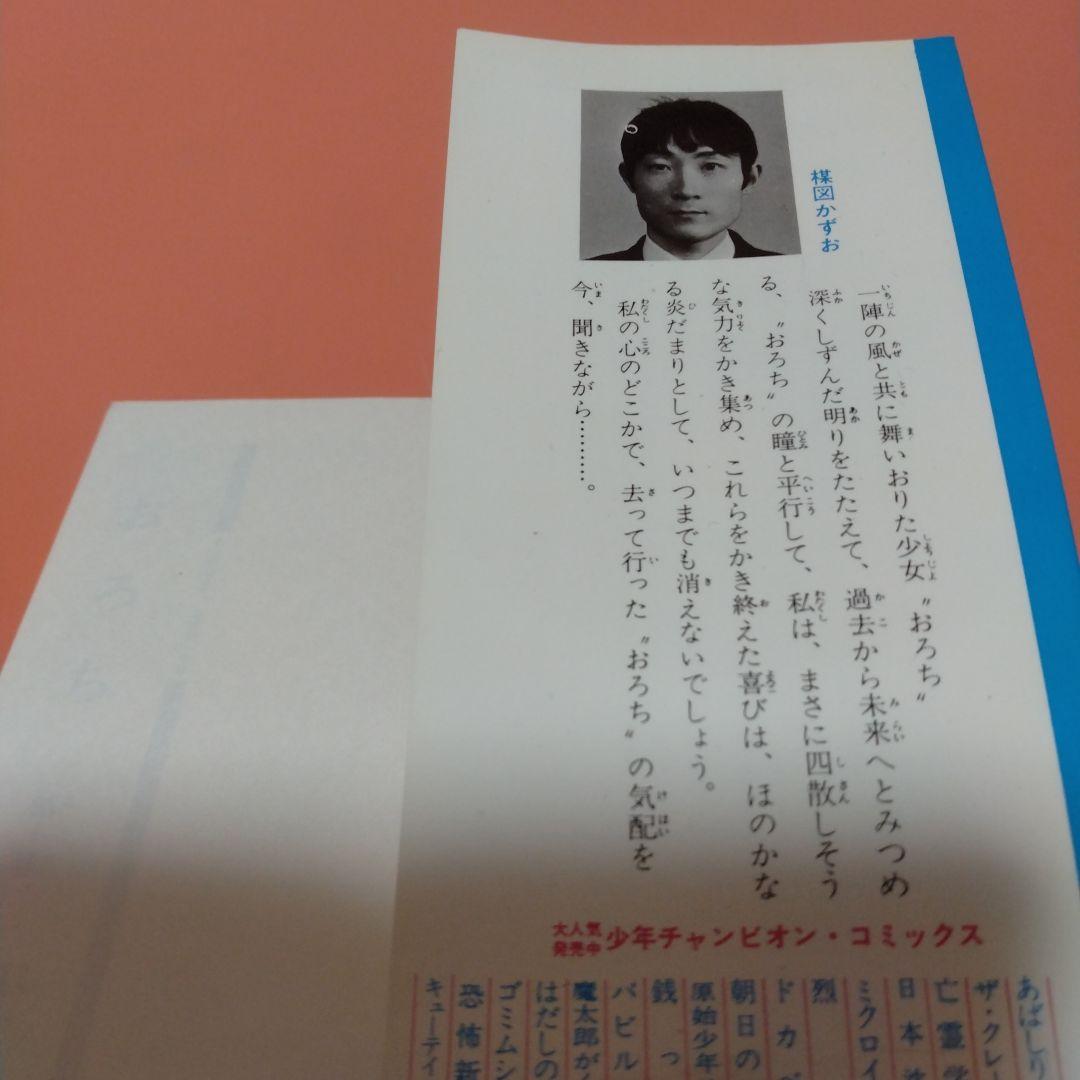 楳図かずお
一陣の風と共に舞いおりた少女〝おろち〟
深くしずんだ明りをたたえて、過去から未来へとみつめ
る、〝おろち〟の瞳と平行して、私は、まさに四散しそう
な気力をかき集め、これらをかき終えた喜びは、ほのかな
る炎だまりとして、いつまでも消えないでしょう。
私の心のどこかで、去って行った〝おろち〟の気配を
今、聞きながら………。
大人気
発売中
少年チャンピオン・コミックス
あばしり
ザ・クレー
亡霊学
日本沈
ミクロイ
烈
ドカベ
朝日の
原始少年
銭っ
バビル
魔太郎が
はだしの
ゴミムシ
恐怖新
キューティ
おろち